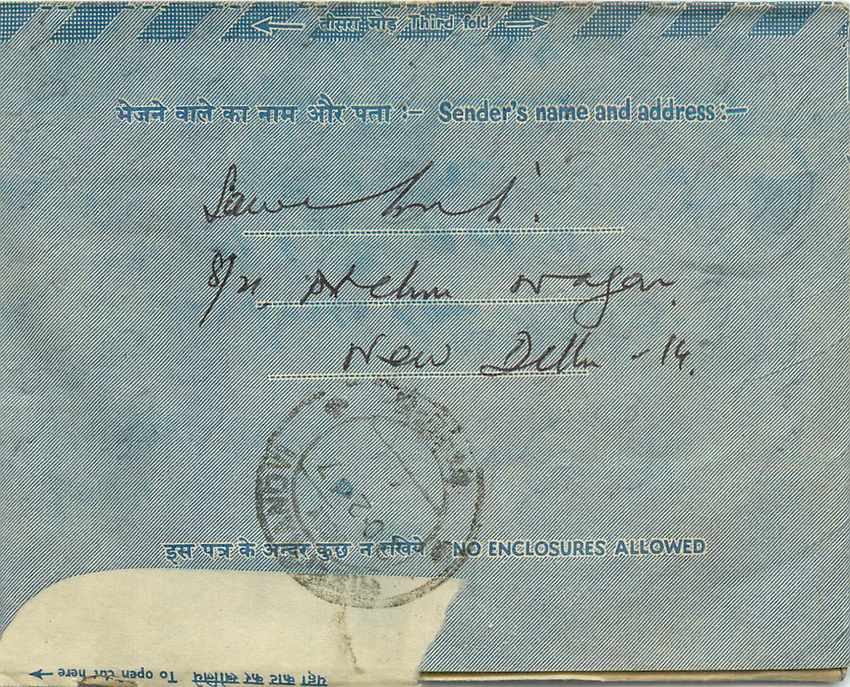 तीसरा मोड़ Third fold
भेजने वाले का नाम और पता :- Sender's name and address:-
8/21, Nehru Nagar,
New Delhi -14.
इस पत्र के अन्दर कुछ न रखिये NO ENCLOSURES ALLOWED
यहां काट कर खोलिये To open cut here